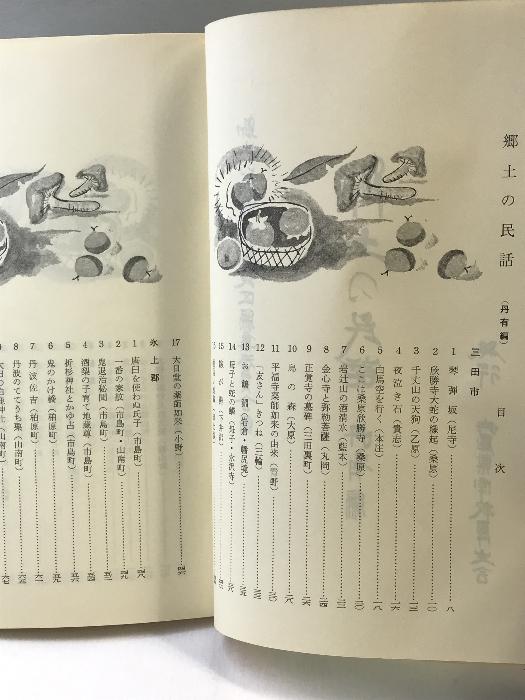 郷土の民話
（丹有編）
目次
三田市
1 琴弾坂（尼寺）………八
2 欣勝寺大蛇の縁起（桑原）………一〇
3 千丈山の天狗（乙原）………一三
4 夜泣き石（貴志）………一六
5 白馬空を行く（本庄）………一八
6 ここは桑原欣勝寺（桑原）………二〇
7 岩辻山の酒清水（藍本）
8 金心寺と弥勒菩薩（丸岡）………二四
9 正覚寺の墓碑（三田裏町）
10 鳥の森（大原）………二八
11 平福寺薬師如来の由来（曽野）
12 「友さん」きつね（三輪）
14 母子と蛇の鱗（母子・永沢寺）
17 大日堂の薬師如来（小野）………四六
氷上郡
1 唐臼を使わぬ氏子（市島町）………四八
2 一番の家紋（市島町・山南町）………四九
3 鬼退治秘聞（市島町）
4 酒梨の子育て地蔵尊（市島町）
5 折杉神社とかゆ占（市島町）
6 鬼のかけ橋（柏原町）
7 丹波佐吉（柏原町）
8 丹波のててうち栗（山南町）